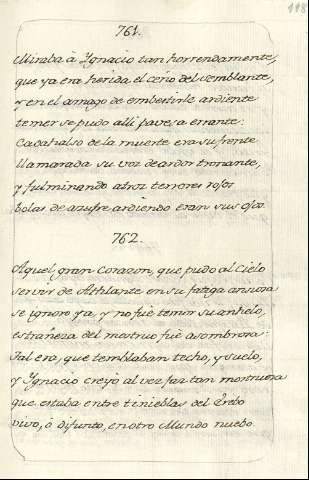 118
761.
Miraba à Ygnacio tan horrendamente,
que ya era herida el ceño del semblante,
y en el amago de embestirle ardiente
temer se pudo alli pavesa errante:
Cadahalso de la muerte era su frente
llamarada su voz de ardor tronante,
y fulminando atroz terrores rojos
bolas de azufre ardiendo eran sus ojos.
762.
Aquel gran Corazon, que pudo al Cielo
servir de Athlante en su fatiga ansiosa
se ignoro ya, y no fue temor su anhelo,
estrañeza del mostruo fuè asombrosa:
Tal era, que temblaban techo, y suelo,
y Ygnacio creyò al ver faz tan mostruosa
que estaba entre tinieblas del Erebo
vivo, ò difunto, en otro Mundo nuebo.